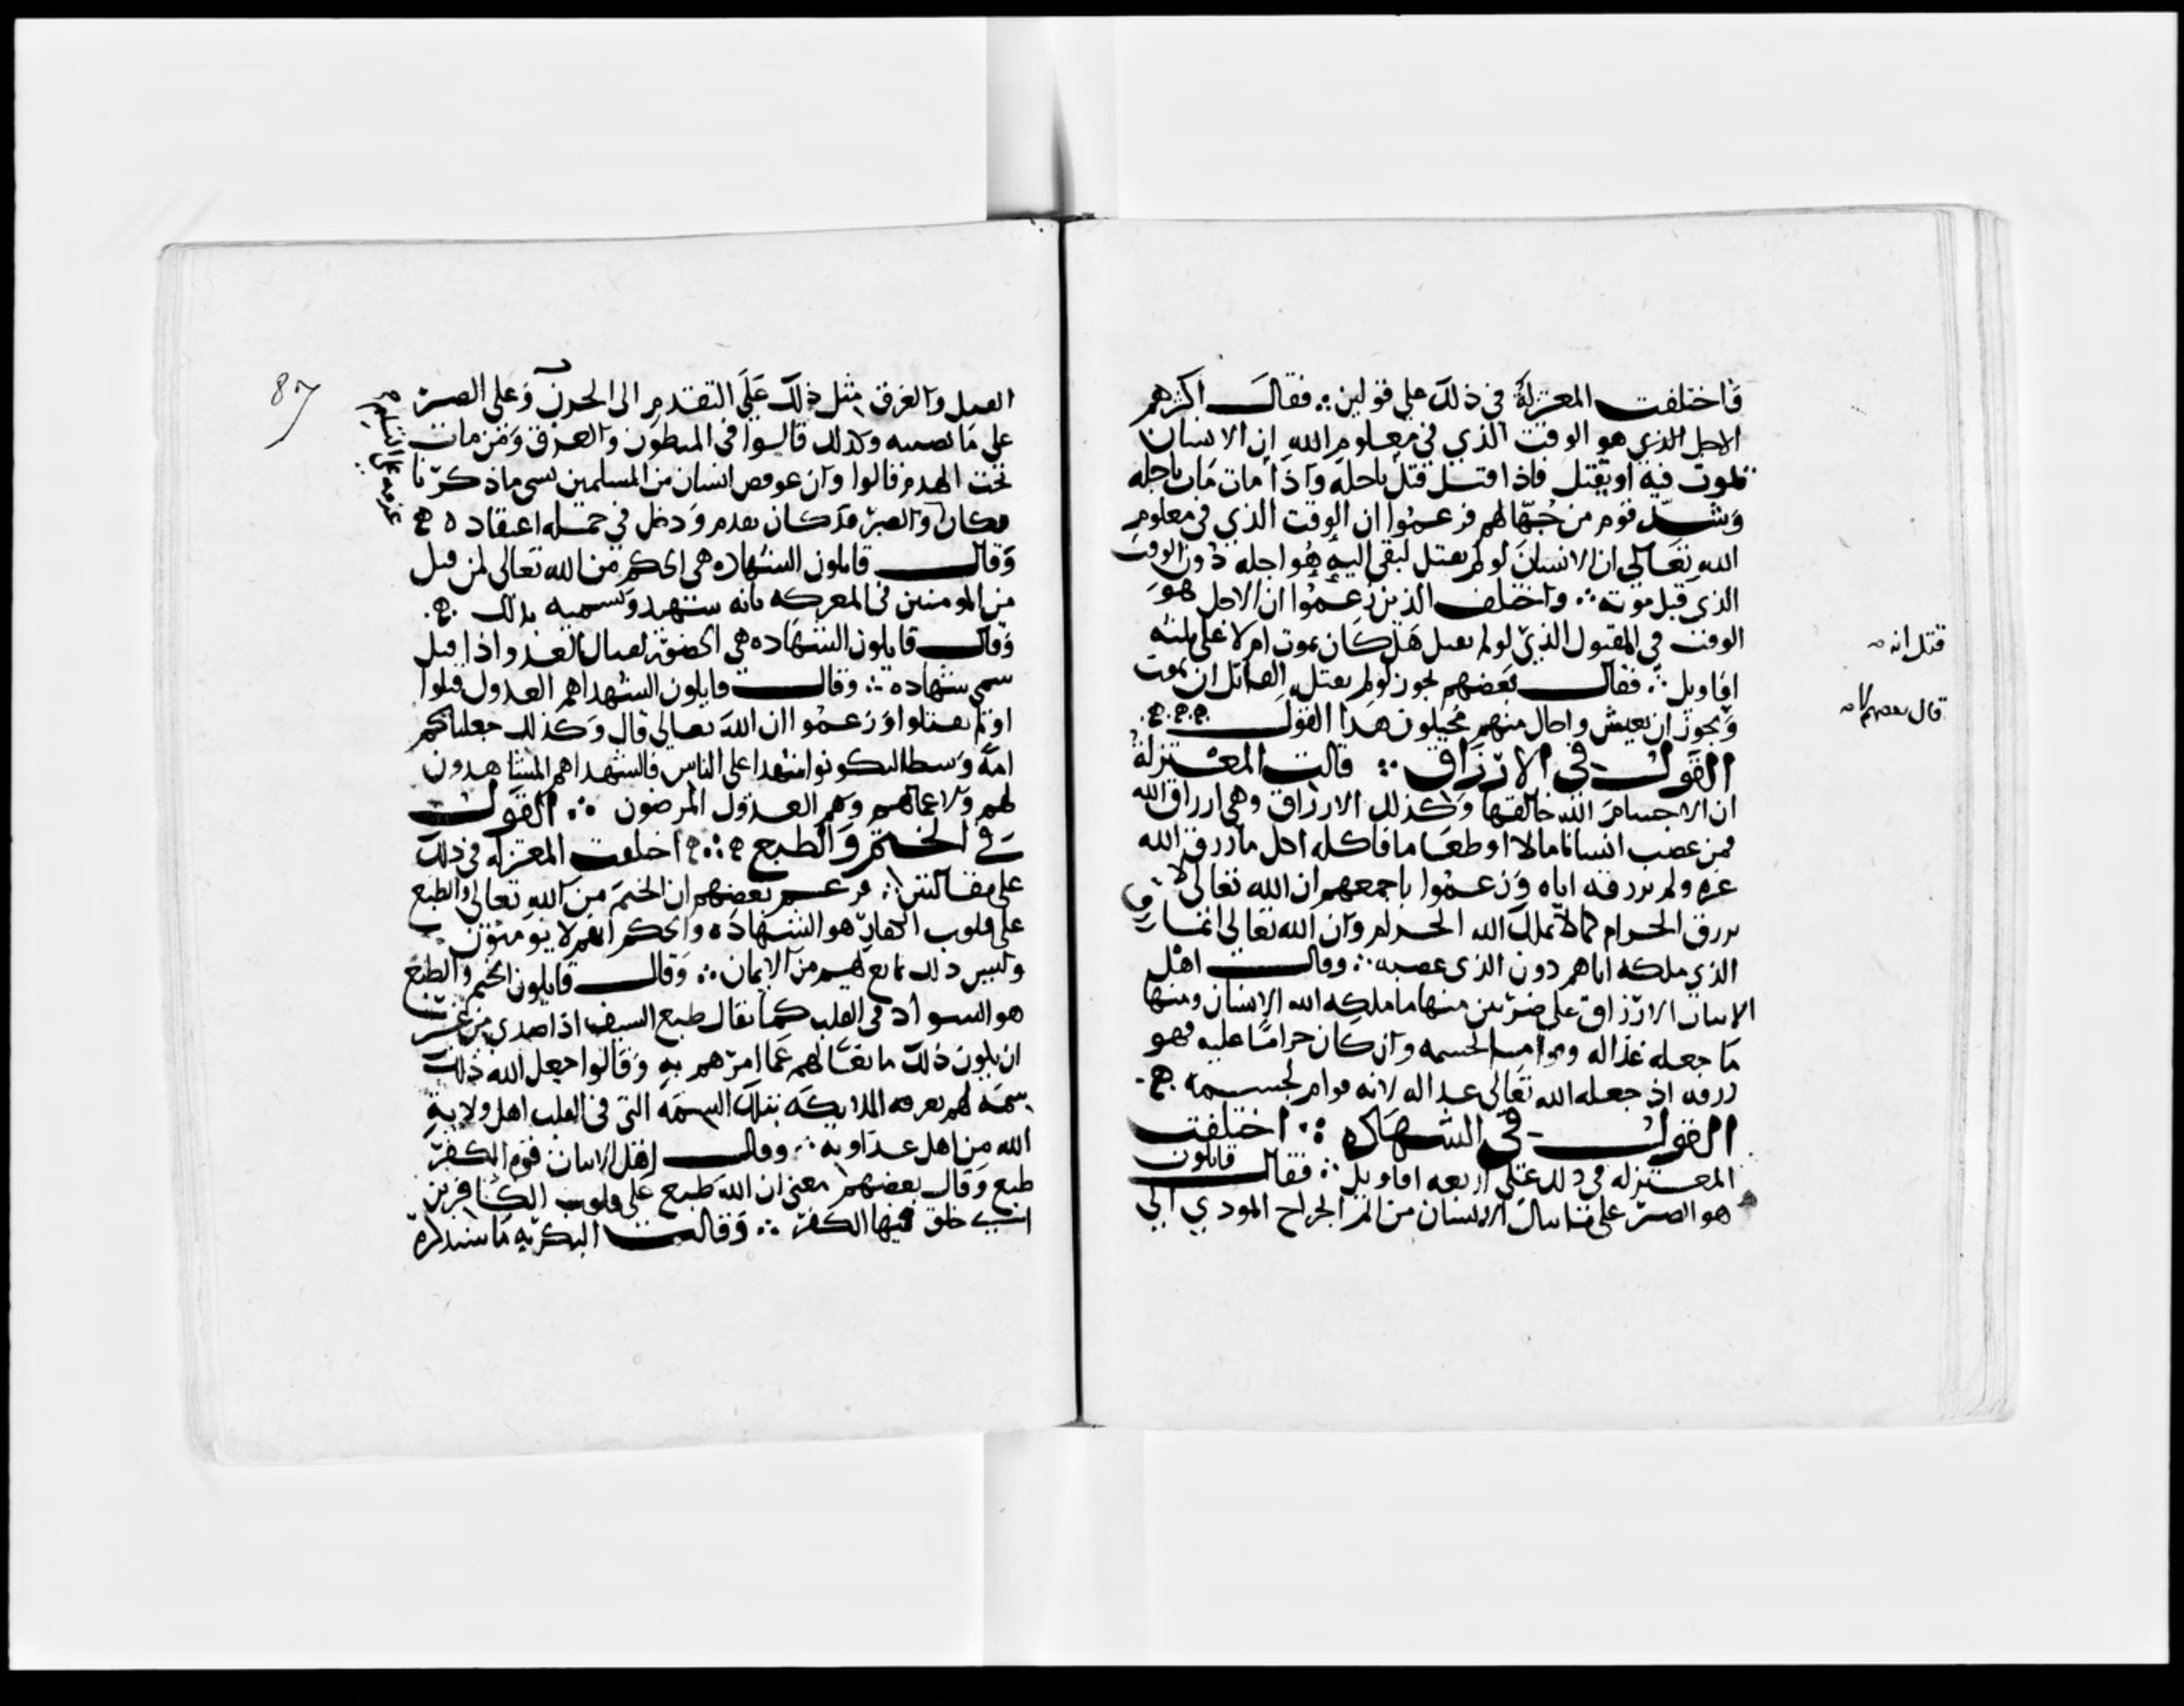 فاختلفت المعتزلة في ذلك علي قولين ؞ فقال اكثرهم
الاجل الذي هو الوقت الذي في معلوم الله ان الانسان
يموت فيه او يقتل فاذا قتل قتل باجله واذا مات مات باجله
وشذ قوم من جهالهم فزعموا ان الوقت الذي في معلوم
الله تعالي ان الانسان لو لم يقتل لبقي اليه هو اجله دون الوقت
الذي قبل موته ؞ واختلف الذين زعموا ان الاجل هو
الوقت في المقتول الذي لو لم يقتل هل كان يموت ام لا على ثلثه
اقاويل ؞ فقال بعضهم يجوز لو لم يقتل القاتل ان يموت
ويجوز ان يعيش واحال منهم محيلون هذا القول
القول في الارزاق ؞ قالت المعتزلة
ان الاجسام الله خالقها وكذلك الارزاق وهي ارزاق الله
فمن غصب انسانا مالا او طعاما فاكله اكل ما رزق الله
غيره ولم يرزقه اياه وزعموا باجمعهم ان الله تعالى لا
يرزق الحرام كما لا يملك الله الحرام وان الله تعالى انما رزق
الذي ملكه اياهم دون الذي غصبه ؞ وقال اهل
الاثبات الارزاق على ضربين منها ما ملكه الله الانسان ومنها
ما جعله غذا له وقواما لجسمه وان كان حراما عليه فهو
رزقه اذ جعله الله تعالى غذا له لانه قوام لجسمه
القول في الشهاده ؞ اختلفت
المعتزله في ذلك على اربعه اقاويل ؞ فقال قايلون
هو الصبر على ما ينال الانسان من الم الجراح المودي الي
قتل انه
قال بعضهم
87
القتل والغرق مثل ذلك علي التقدم الى الحرب وعلى الصبر
على ما يصيبه وكذلك قالوا في المبطون والغرق ومن مات
تحت الهدم قالوا وان عوفص انسان من المسلمين بشى ماذكرنا
فكان والصبر قد كان يقدم ودخل في جملة اعتقاده
وقال قايلون الشهاده هي الحكم من الله تعالي لمن قتل
من المومنين في المعركه بانه شهيد وتسميه بذلك
وقال قايلون الشهاده هي الحضور لقتال العدو اذا قتل
سمى شهاده ؞ وقال قايلون الشهدا هم العدول قتلوا
او لم يقتلوا وزعموا ان الله تعالى قال وكذلك جعلناكم
امة وسطا لتكونوا شهدا على الناس فالشهدا هم المشاهدون
لهم ولاعمالهم وهم العدول المرضون ؞ القول
في الختم والطبع ؞ اختلفت المعتزله في ذلك
على مقالتين ؞ فزعم بعضهم ان الختم من الله تعالى والطبع
على قلوب الكفار هو الشهاده والحكم انهم لا يومنون
وليس ذلك بمانع لهم من الايمان ؞ وقال قايلون الختم والطبع
هو السواد في القلب كما يقال طبع السيف اذا صدي من غير
ان يكون ذلك مانعا لهم عما امرهم به وقالوا جعل الله ذلك
سمة لهم يعرف الملايكه بتلك السمة التي في القلب اهل ولاية
الله من اهل عداوته ؞ وقال اهل الاثبات قوة الكفر
طبع وقال بعضهم معنى ان الله طبع على قلوب الكافرين
اي خلق فيها الكفر ؞ وقالت البكريه ما سنذكره